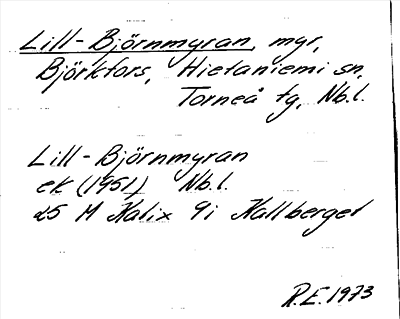 Lill-Björnmyran, myr,
Björkfors, Hietaniemi sn,
Torneå tg, Nb.l.
Lill-Björnmyran
ek (1951) Nb.l.
25 M Kalix 9i Kallberget
R.E. 1973